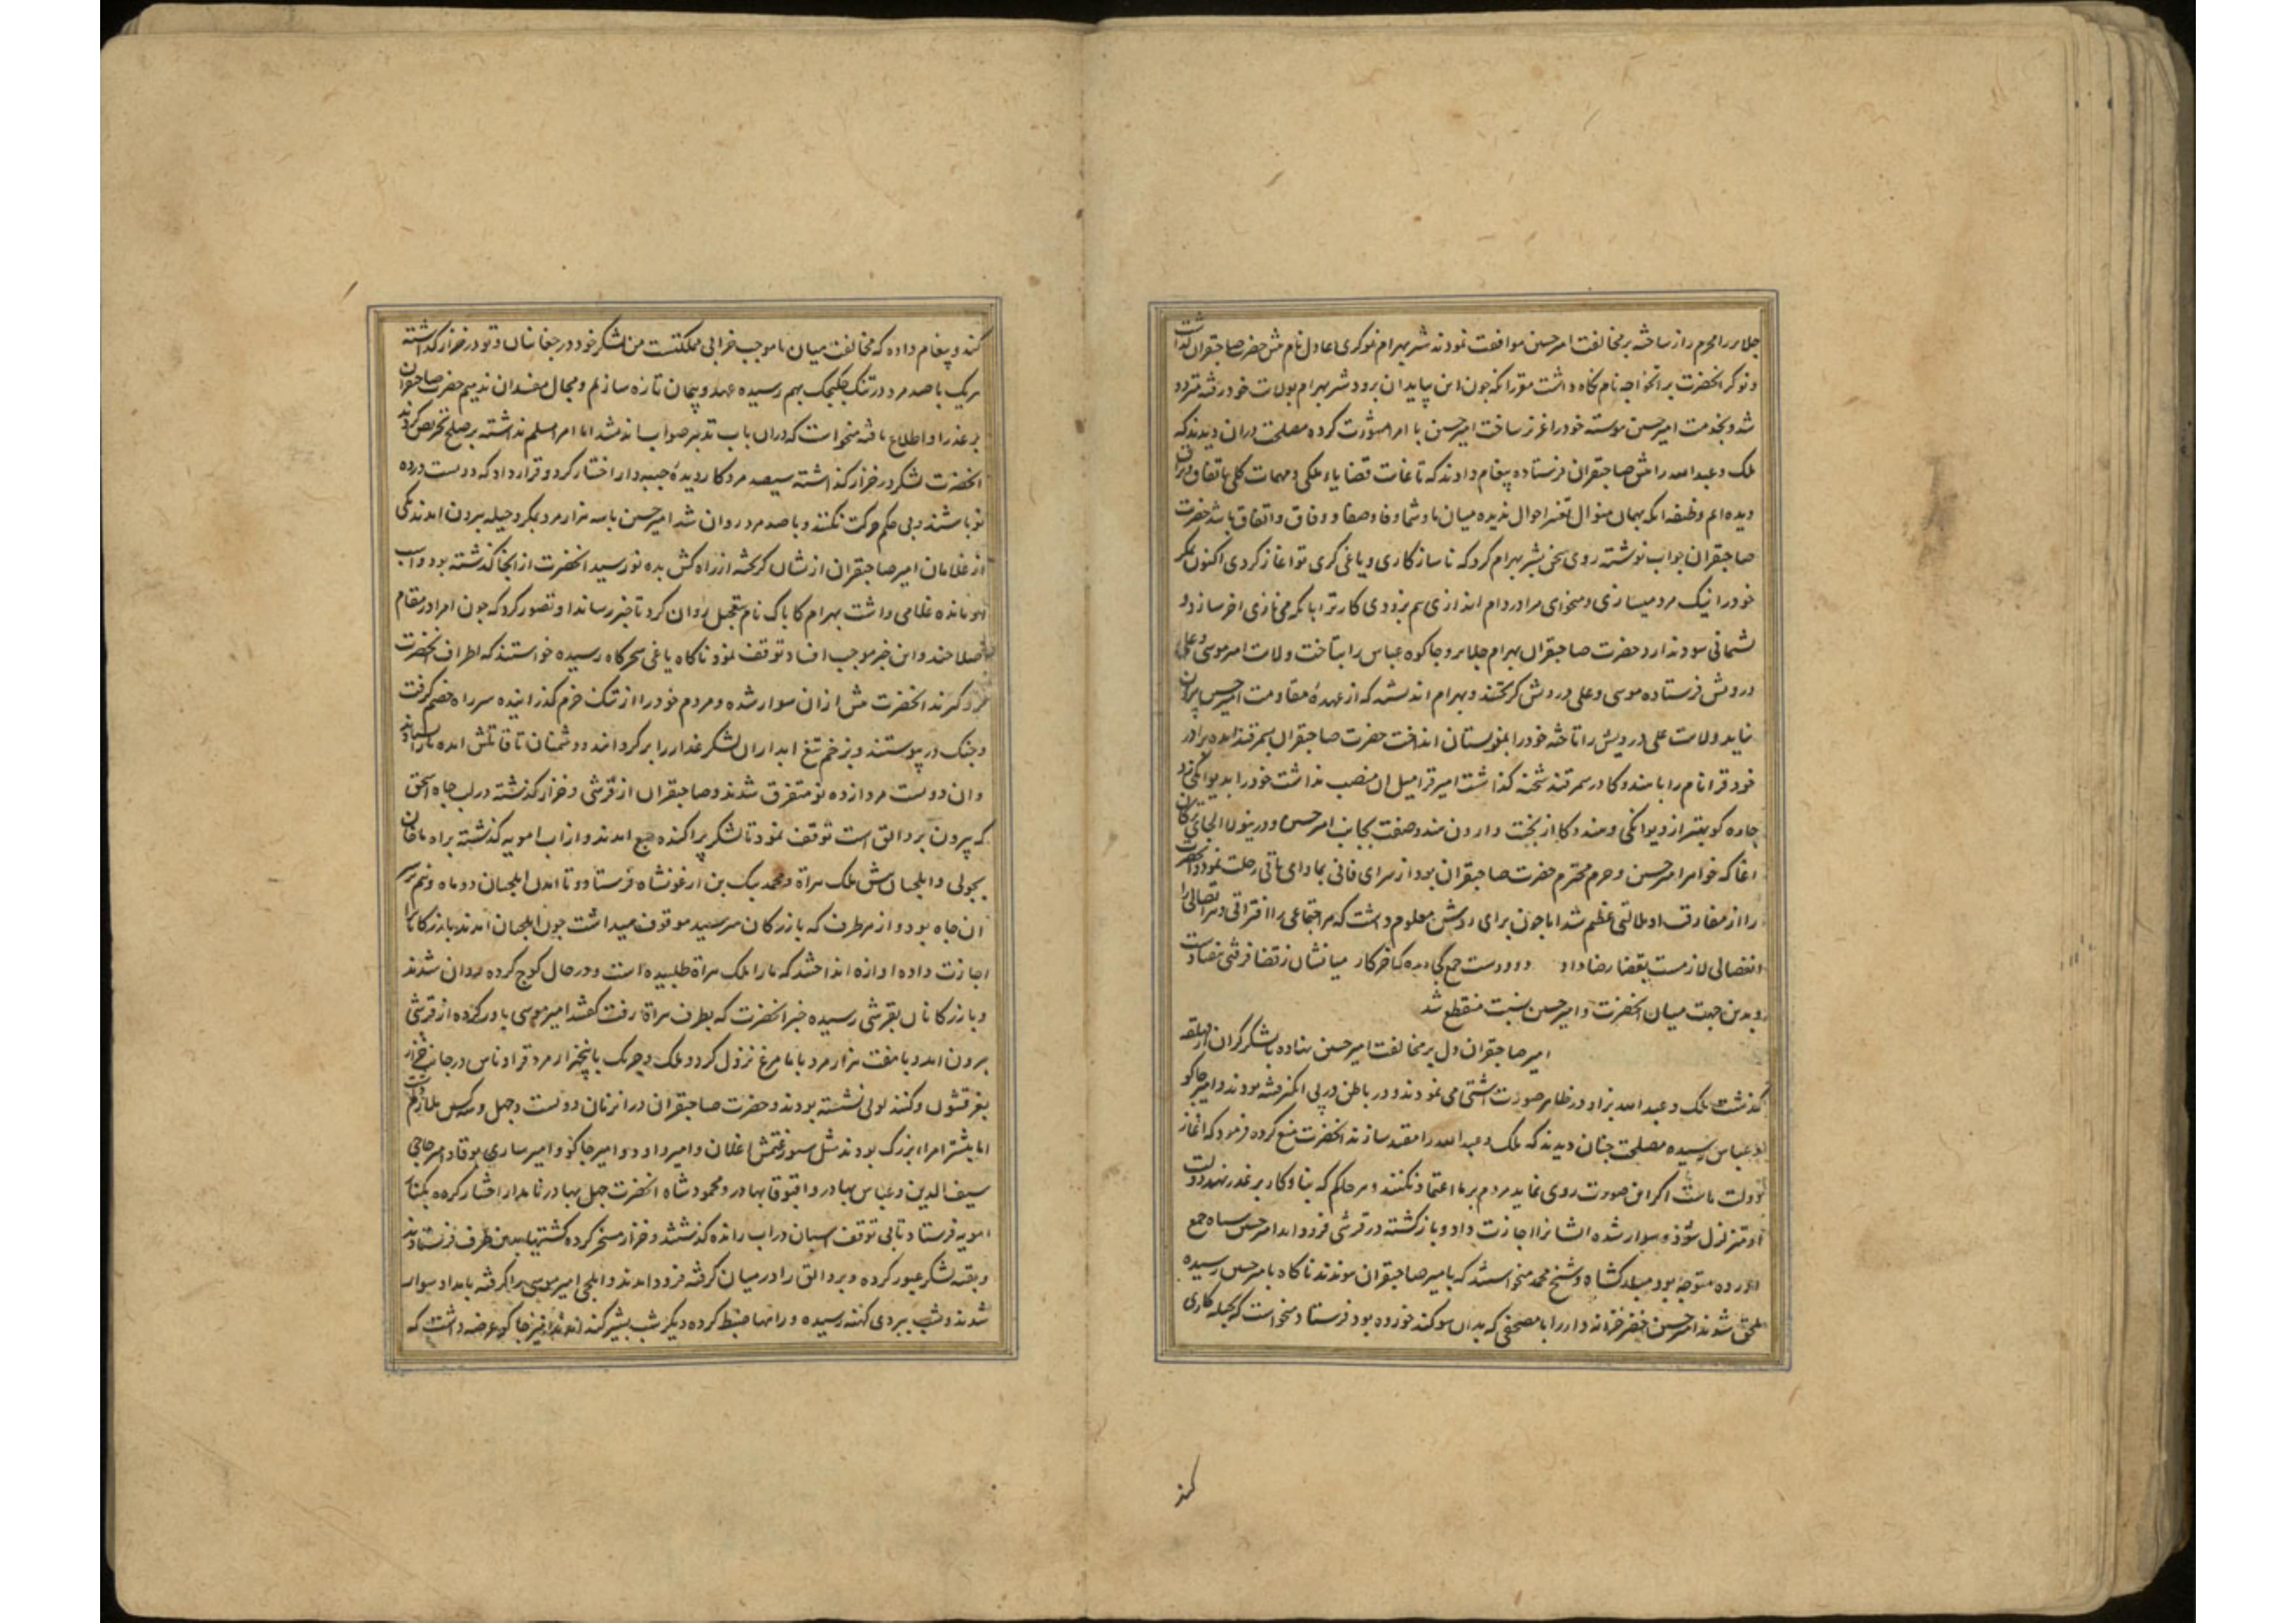 جلایر را محرم راز ساخته بر مخالفت امیر حسین موافقت نمودند شیر بهرام نوکری عادل نام پیش حضرت صاحبقران گذاشت
و نوکر آنحضرت نام نگاه داشت مقرر آنکه چون این بپایان برود شیر بهرام بولایت خود رفته متردد
شد و بخدمت امیر حسین پیوسته خود را عزیز ساخت امیر حسین با امرا مشورت کرده مصلحت در آن دیدند که
ملک و عبدالله را پیش صاحبقران فرستاده پیغام دادند که تا غایت قضایاء ملکی و مهمات کلی باتفاق
دیده ایم وظیفه آنکه بهمان منوال تغییر احوال ندیده میان ما و شما وفا و صفا و وفاق و اتفاق باشد حضرت
صاحبقران جواب نوشته روی سخن بشیر بهرام کرد که ناسازکاری و یاغی گری تو آغاز کردی اکنون مگر
خود را نیک مرد میسازی و میخواهی مرا در دام اندازی هم بزودی کار ترا با آنکه می نازی آخر سازد و
پشیمانی سود ندارد حضرت صاحبقران بهرام جلایر و جاکو و عباس را بتاخت ولایت امیر موسی و علی
درویش فرستاده موسی و علی درویش گریختند و بهرام اندیشه که از عهدهٔ مقاومت امیر حسین بیرون
نیاید ولایت علی درویش را تاخته خود را بمغولستان انداخت حضرت صاحبقران بسمرقند آمده برادر
خود قرا نام را با هندو کا در سمرقند شحنه گذاشت امیر قرا میل آن منصب نداشت خود را بدیوانگی زد
چاره کو بهتر از دیوانگی و هندو کا از بخت وارون هندو صفت بجانب امیر حسین و درینولا الجای ترکان
آغا که خواهر امیر حسین و حرم محترم حضرت صاحبقران بود از سرای فانی بماوای باقی رحلت نمود و آنحضرت
را از مفارقت او ملالتی عظیم شد اما چون برای روشن معلوم داشت که هر اجتماعی را افتراقی و هر اتصالی را
انفصالی لازمست بقضا رضا داد دو دوست جمع میانشان ز قضا فرقتی
و بدین جهت میان آنحضرت و امیر حسین نسبت منقطع شد
امیر صاحبقران دل بر مخالفت امیر حسین نهاده با لشکر گران از
گذشت ملک و عبدالله نزاد در ظاهر صورت آشتی می نمودند و در باطن در پی بودند و امیر جاکو
و عباس رسیده مصلحت چنان دیدند که ملک و عبدالله را مقید سازند آنحضرت منع کرده فرمود که آغاز
دولت ماست اگر این صورت روی نماید مردم بر ما اعتماد نکنند و هر حاکم که بنای کار بر غدر نهد دولت
او متزلزل شود و سوار شده ایشان را اجازت داد و باز گشته در قرشی فرود آمد امیر حسین سپاه جمع
آورده متوجه بود میلدکشاه و شیخ محمد میخواستند که بامیر صاحبقران پیوندند ناگاه بامیر حسین رسیده
ملحق شدند امیر حسین خضر خزانه دار را با مصحفی که بدان سوگند خورده بود فرستاد و میخواست که بحیله کاری
کند
کند و پیغام داده که مخالفت میان ما موجب خرابی مملکتست من لشکر خود در چغانیان و تو در خزار گذاشته
هر یک با صد مرد در تنگ چکچک بهم رسیده عهد و پیمان تازه سازیم و مجال مفسدان ندهیم حضرت صاحبقران
بر عذر او اطلاع یافته میخواست که در آن باب تدبیر صواب اندیشد اما امرا مسلم نداشته بر صلح تحریص کردند
آنحضرت لشکر در خزار گذاشته سیصد مرد کار دیدهٔ جیبه دار اختیار کرد و قرار داد که دویست در ده
نو باشند و بی حکم حرکت نکنند و با صد مرد روان شد امیر حسین با سه هزار مرد بمکر و حیله بیرون آمد یکی
از غلامان امیر صاحبقران از نشان گریخته از راه کش بده نو رسید آنحضرت از آنجا گذشته بود و اسب
مانده غلامی داشت بهرام کاباک نام بتعجیل روان کرد تا خبر رساند او تصور کرد که چون امرا در مقام
اصلاحند و این خبر موجب افساد توقف نمود ناگاه یاغی سحرگاه رسیده خواستند که اطراف آنحضرت
فرو گیرند آنحضرت پیش از آن سوار شده و مردم خود را از تنک خرم گذرانیده سر راه خصم گرفت
و جنگ در پیوستند و بزخم تیغ آبداران لشکر غدار را بر گردانند و دشمنان تا آمده باز
و آن دویست مرد از ده نو متفرق شدند و صاحبقران از قرشی و خزار گذشته در لب چاه اسحق
که بیرون بردالق است توقف نمود تا لشکر پراکنده جمع آمدند و از آب امویه گذشته براه ماخان
بجولی و ایلچیان پیش ملک هراة و محمد بیک بن ارغونشاه فرستاد و تا آمدن ایلچیان دو ماه و نیم بر سر
آن چاه بود و از هر طرف که بازرگان میرسید موقوف میداشت چون ایلچیان آمدند بازرگانان را
اجازت داده آوازه انداختند که ما را ملک هراة طلبیده است و در حال کوچ کرده روان شدند
و بازرگانان بقرشی رسیده خبر آنحضرت که بطرف هراة رفت گفتند امیر موسی باور کرده از قرشی
بیرون آمد و با هفت هزار مرد بابا مرغ نزول کرد و ملک و جریک با پنج هزار مرد قراوناس در جانب خزار
و کنبد لولی نشسته بودند و حضرت صاحبقران در آن زمان دویست و چهل و سه کس ملازم داشت
اما بیشتر امراء بزرگ بودند مثل سیورغتمش اغلان و امیر داود و امیر جاکو و امیر ساری بوقا و امیر حاجی
سیف الدین و عباس بهادر و اقبوقا بهادر و محمود شاه آنحضرت چهل بهادر نامدار اختیار کرده بکنار
امویه فرستاد تا بی توقف اسپان در آب رانده گذشتند و خزار مسخر کرده کشتیها بدین طرف فرستادند
و بقیه لشکر عبور کرده و بردالق را در میان گرفته فرود آمدند و ایلچی امیر موسی را گرفته بامداد سوار
شدند و شب ببردی کهنه رسیده و راهها ضبط کرده دیگر شب بشیر کند آمدند امیر جاکو عرضه داشت که